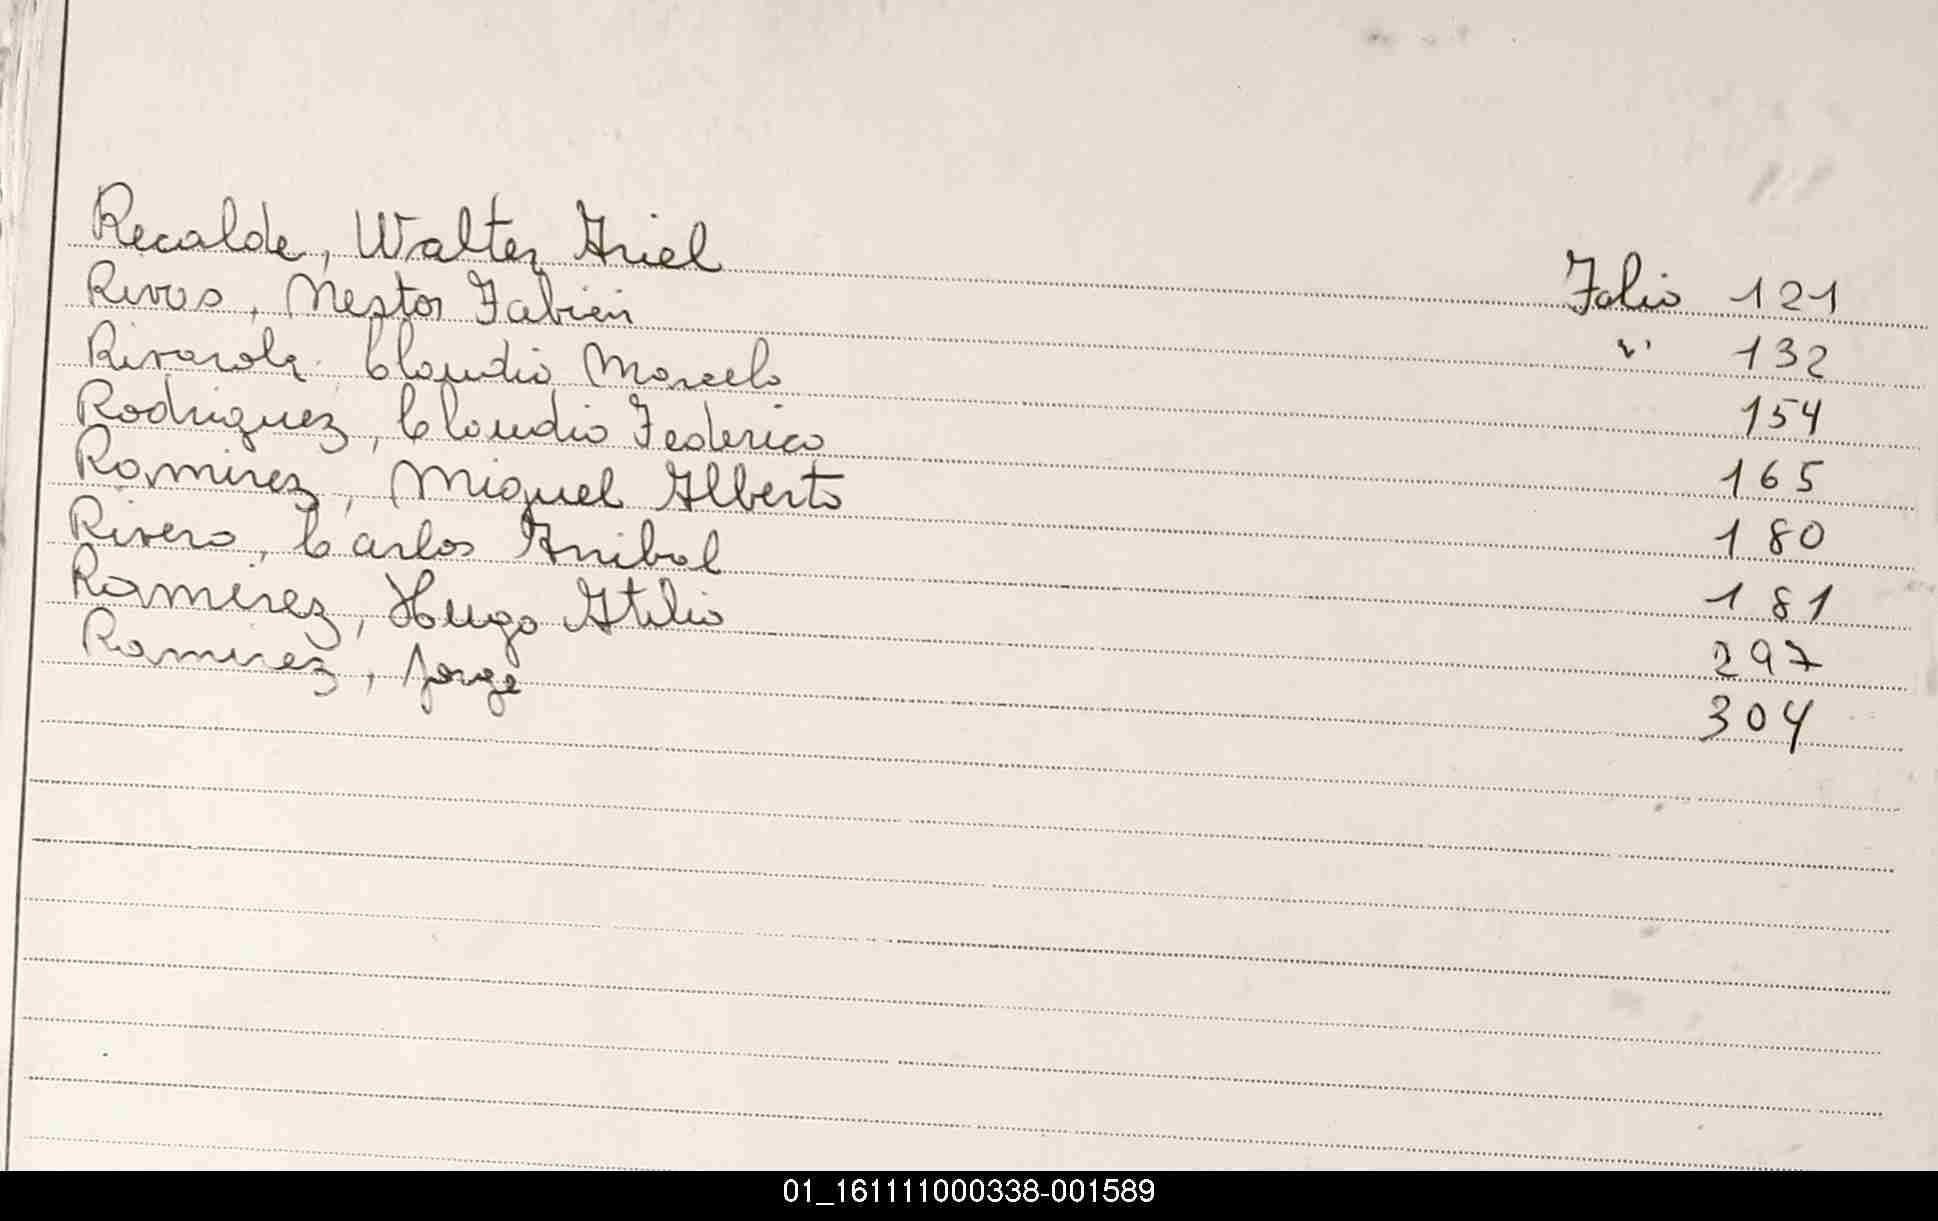 Recalde, Walter Ariel Folio 121
Rivas, Nestor Fabián " 132
Rivarola Claudio Marcelo 154
Rodriguez, Claudio Federico 165
Ramirez, Miguel Alberto 180
Rivero, Carlos Anibal 181
Ramirez, Hugo Atilio 297
Ramirez, Jorge 304
01_161111000338-001589